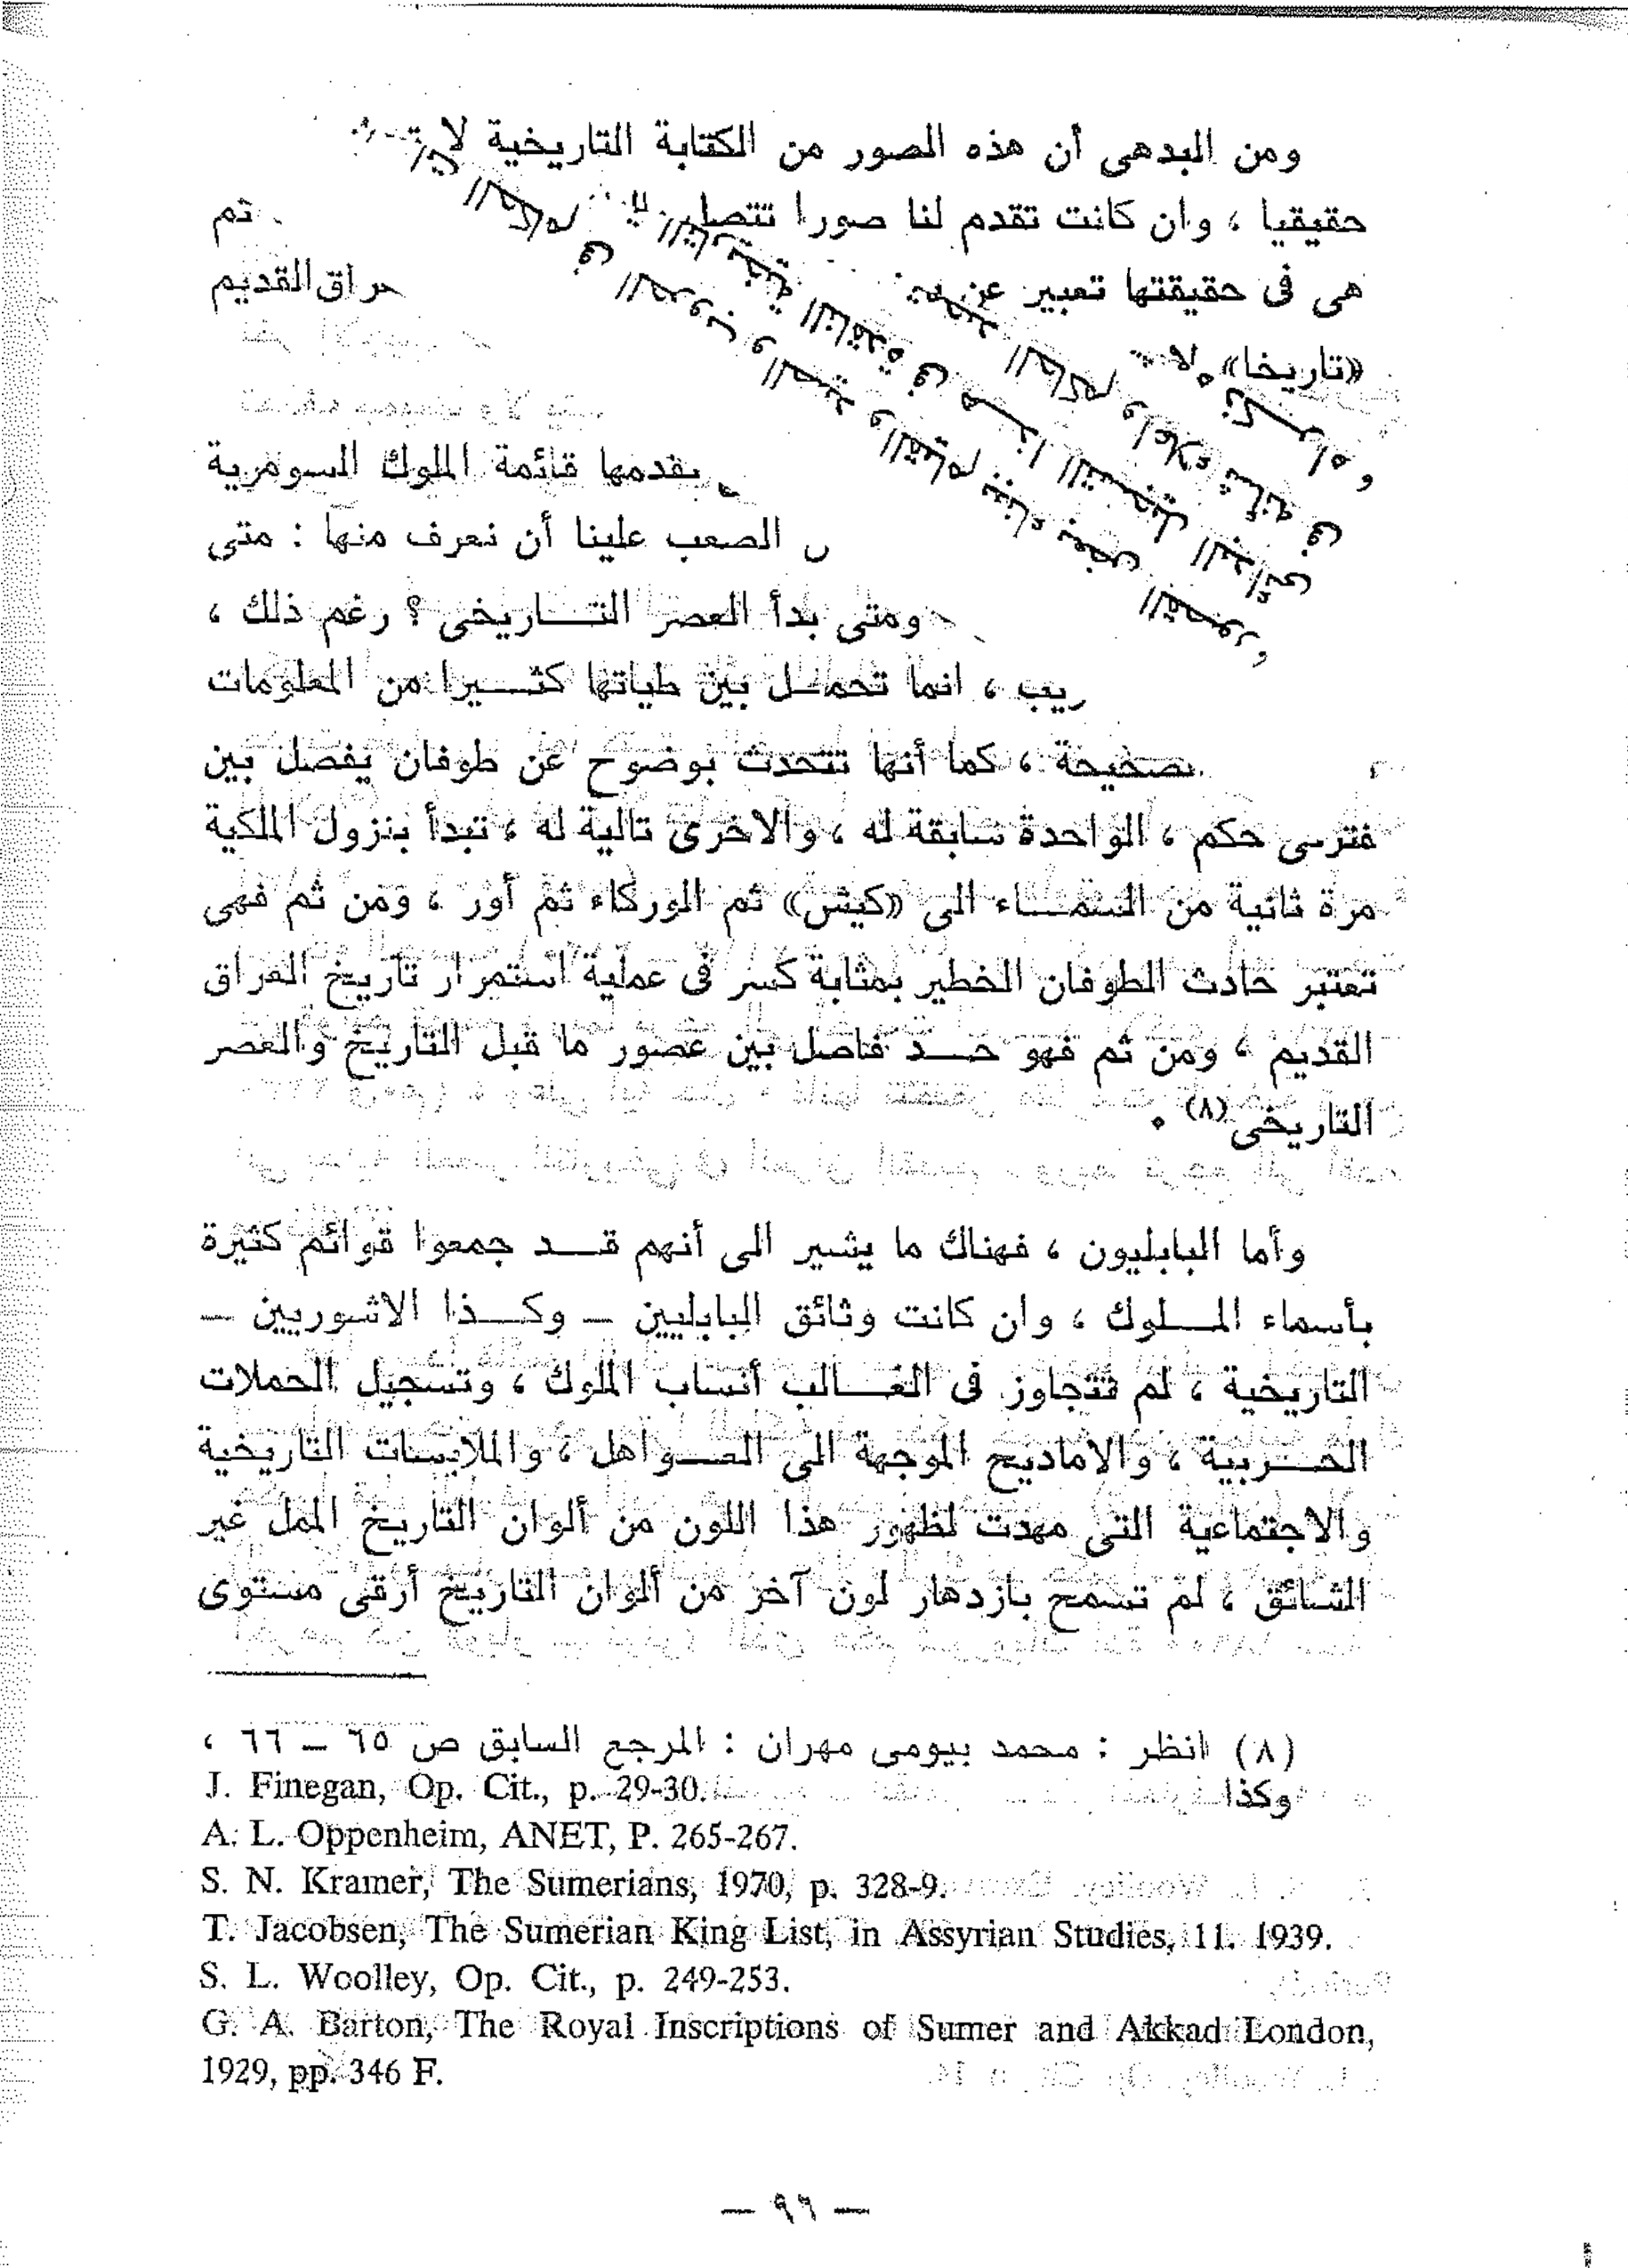 ومن البدهى أن هذه الصور من الكتابة التاريخية لا
حقيقيا ، وان كانت تقدم لنا صورا تتصل ثم
هى فى حقيقتها تعبير عن القديم
«تاريخا»
يقدمها قائمة الملوك السومرية
الصعب علينا أن نعرف منها : متى
ومتى بدأ العصر التــاريخى ؟ رغم ذلك ،
ريب ، انما تحمــل بين طياتها كثــيرا من المعلومات
صحيحة ، كما أنها تتحدث بوضوح عن طوفان يفصل بين
فترتى حكم ، الواحدة سابقة له ، والاخرى تالية له ، تبدأ بنزول الملكية
مرة ثانية من السمــاء الى «كيش» ثم الوركاء ثم أور ، ومن ثم فهى
تعتبر حادث الطوفان الخطير بمثابة كسر فى عملية استمرار تاريخ العراق
القديم ، ومن ثم فهو حــد فاصل بين عصور ما قبل التاريخ والعصر
التاريخى(٨) .
وأما البابليون ، فهناك ما يشير الى أنهم قــد جمعوا قوائم كثيرة
بأسماء المــلوك ، وان كانت وثائق البابليين – وكــذا الاشوريين –
التاريخية ، لم تتجاوز فى الغــالب أنساب الملوك ، وتسجيل الحملات
الحــربية ، والاماديح الموجهة الى الصــواهل ، والملابسات التاريخية
والاجتماعية التى مهدت لظهور هذا اللون من ألوان التاريخ الممل غير
الشائق ، لم تسمح بازدهار لون آخر من ألوان التاريخ أرقى مستوى
(٨) انظر : محمد بيومى مهران : المرجع السابق ص ٦٥ – ٦٦ ،
وكذا J. Finegan, Op. Cit., p. 29-30.
A. L. Oppenheim, ANET, P. 265-267.
S. N. Kramer, The Sumerians, 1970, p. 328-9.
T. Jacobsen, The Sumerian King List, in Assyrian Studies, 11. 1939.
S. L. Woolley, Op. Cit., p. 249-253.
G. A. Barton, The Royal Inscriptions of Sumer and Akkad London,
1929, pp. 346 F.
— ٩٦ —